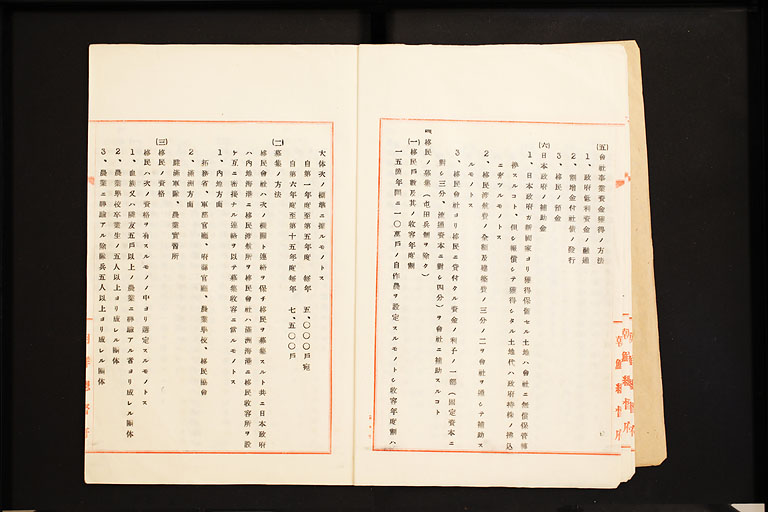 (五)會社事業資金獲得ノ方法
1、政府低利資金ノ融通
2、割增金付社債ノ發行
3、移民ノ預金
(六)日本政府ノ補助金
1、日本政府ガ新國家ヨリ獲得保留セル土地ハ會社ニ無償
スルコト、但シ報償シテ獲得シタル土地代ハ政府持株ノ拂込
ニ充ツルモノトス
2、移民渡航費ノ全額及建築費ノ三分ノ二ヲ會社ヲ通シテ補助ス
ルモノトス
3、移民會社ヨリ移民ニ貸付タル資金ノ利子ノ一部(固定資本ニ
對シ三分、流通資本ニ對シ四分)ヲ會社ニ補助スルコト
四、移民ノ募集(屯田兵制ヲ除ク)
(一)移民戶數及其ノ收容年度割
一五箇年間ニ一〇萬戶ノ自作農ヲ設定スルモノトシ收容年度割ハ
大体次ノ標準ニ據ルモノトス
自第一年度至第五年度 每年 五、〇〇〇戶宛
自第六年度至第十五年度每年 七、五〇〇戶
(二)募集ノ方法
移民會社ハ次ノ機關ト連絡ヲ保チ移民ヲ募集スルト共ニ日本政府
ハ內地海港ニ移民渡航所ヲ移民會社ハ滿洲海港ニ移民收容所ヲ設
ケ互ニ密接ナル連絡ヲ以テ募集收容ニ當ルモノトス
1、內地方面
拓務省、軍部官廳、府縣官廳、農業學校、移民協會
2、滿洲方面
駐滿軍隊、農業實習所
(三)移民ノ資格
移民ハ次ノ資格ヲ有スルモノノ中ヨリ選定スルモノトス
1、血族又ハ隣友五戶以上ノ農業ニ經驗アル者ヨリ成レル團体
2、農業學校卒業生ノ五人以上ヨリ成レル團体
3、農業ニ經驗アル除隊兵五人以上ヨリ成レル團体
朝鮮總督府
朝鮮總督府